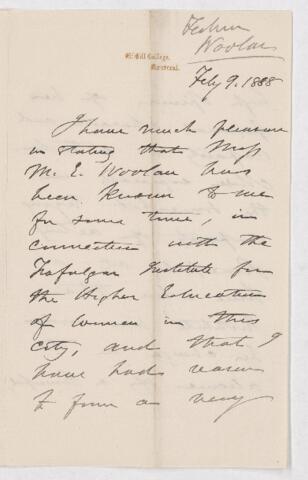 Woolan
McGill College,
Montreal.
Feby 9. 1888
I have much pleasure
in stating that Miss
M. E. Woolan has
been known to me
for some time, in
connection with the
Trafalgar Institute for
the Higher Education
of Women in this
City, and that I
have had reason
to form a very